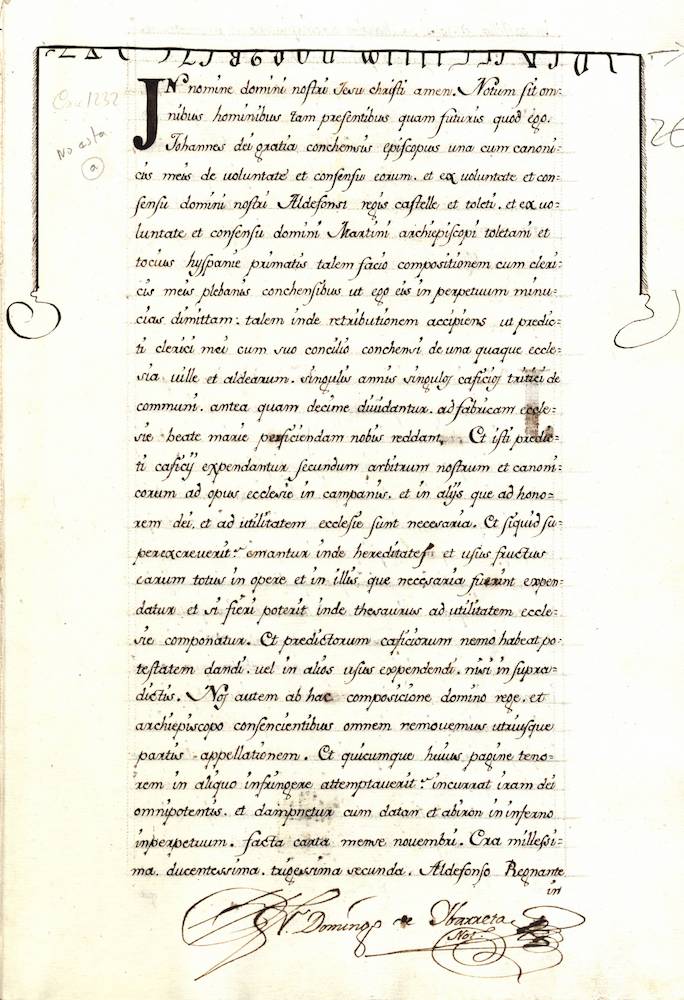 Era 1232
No esta
a
IN nomine domini nostri Jesu christi amen. Notum sit om=
nibus hominibus tam presentibus quam futuris quod ego.
Johannes dei gratia conchensis episcopus una cum canoni=
cis meis de voluntate et consensu eorum. et ex voluntate et con=
sensu domini nostri Aldefonsi regis castelle et toleti. et ex vo=
luntate et consensu domini Martini archiepiscopi toletani et
tocius hyspanie primatis talem facio compositionem cum cleri=
cis meis plebanis conchensibus ut ego eis in perpetuum minu=
cias dimittam: talem inde retributionem accipiens ut predic=
ti clerici mei cum suo concilio conchensi de una quaque eccle=
sia ville et aldearum. singulis annis singulos caficios tritici de
communi. antea quam decime dividantur. ad fabricam eccle=
sie beate marie perficiendam nobis reddant. Et isti predic=
ti caficij expendantur secundum arbitrum nostrum et canoni=
corum ad opus ecclesie in campanis. et in alijs que ad hono=
rem dei. et ad utilitatem ecclesie sunt necesaria. Et siquid su=
perexcreverit: emantur inde hereditates et usus fructus
earum totus in opere et in illis que necesaria fuerint expen=
datur et si fieri poterit inde thesaurus ad utilitatem eccle=
sie componatur. Et predictorum caficiorum nemo habeat po=
testatem dandi. vel in alios usus expendendi. nisi in supra=
dictis. Nos autem ab hac composicione domino rege. et
archiepiscopo consencientibus omnem removemus utriusque
partis appellationem. Et quicumque huius pagine teno=
rem in aliquo infringere attemptaverit: incurrat iram dei
omnipotentis. et dampnetur cum datan et abiron in inferno
inperpetuum. facta carta mense novembri. Era millessi=
ma. ducentessima. trigessima secunda. Aldefonso Regnante
in
Domingo de Ybarreta
Not.